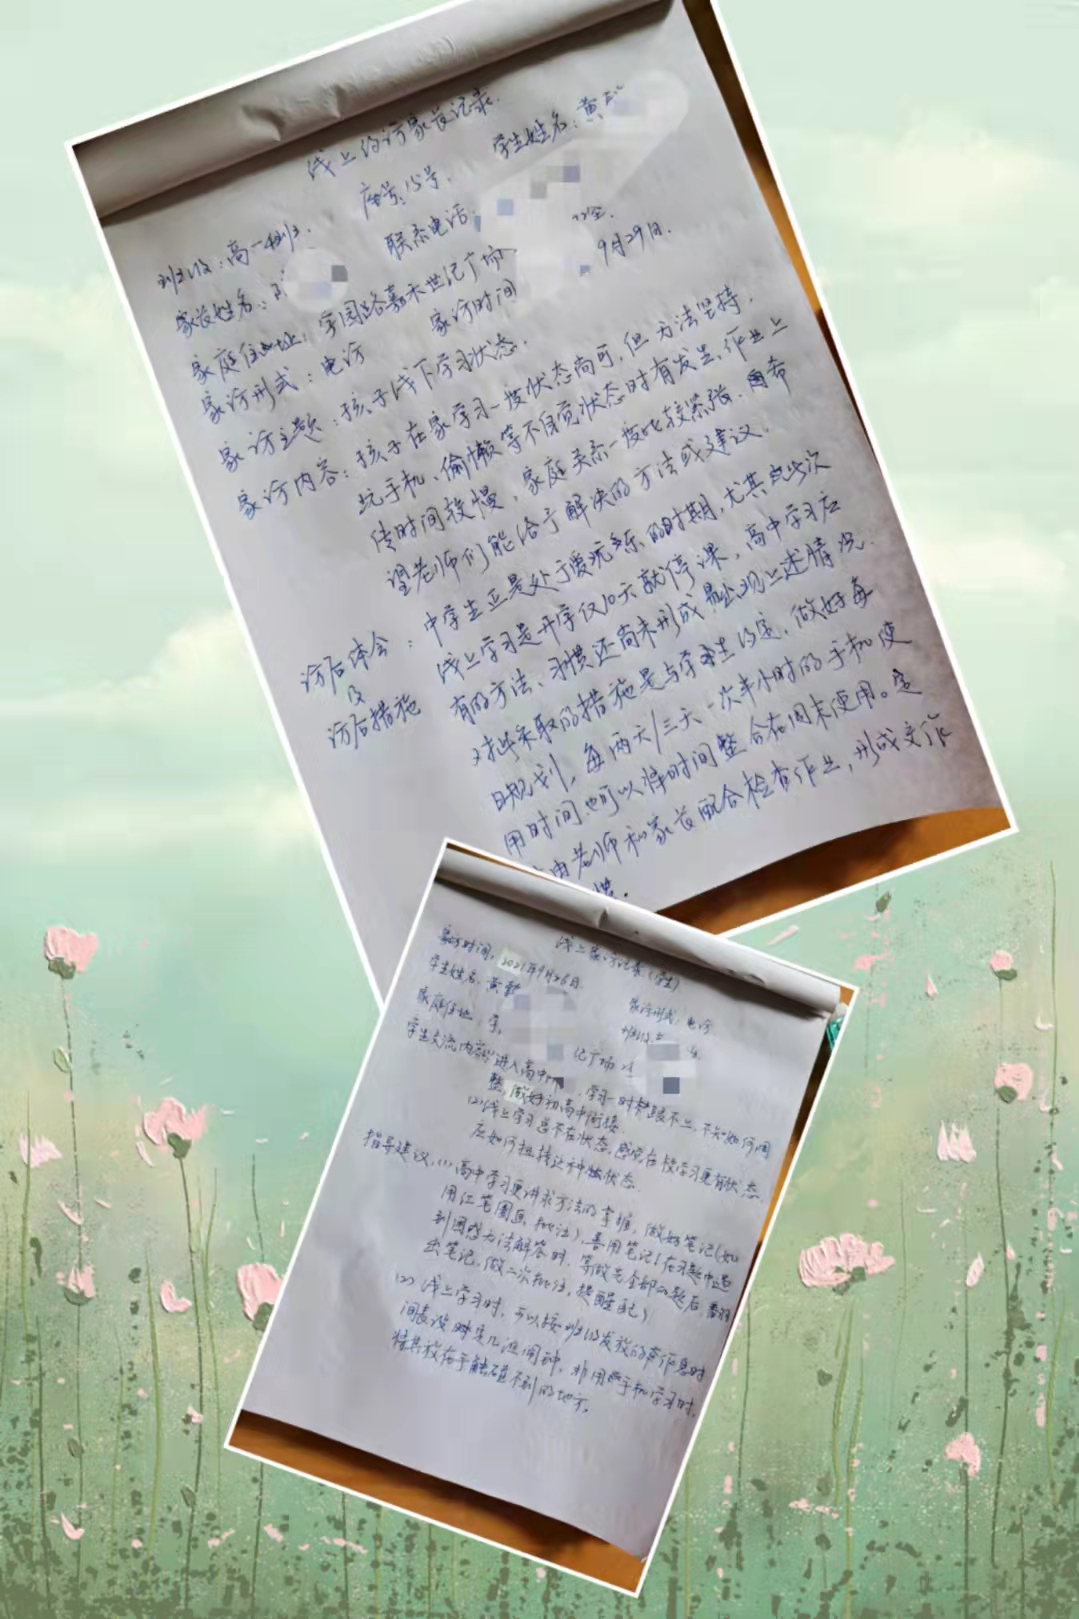 线上约访家长记录
座号:15号.
学生姓名:黄
班级:高一4班.
联系电话:
家长姓名:
家庭住址:学园路嘉禾世纪广场
家访形式:电访
家访时间
9月29日.
家访主题:孩子线下学习状态.
家访内容:孩子在家学习一度状态尚可,但无法坚持.
玩手机、偷懒等不自觉状态时有发生,作业上
传时间较慢,家庭关系一度比较紧张.希
望老师们能给予解决的方法或建议.
访后体会
及
访后措施
:中学生正是处于爱玩乐的时期,尤其此次
线上学习是开学仅10天就停课,高中学习应
有的方法、习惯还尚未形成易出现上述情况.
对此采取的措施是与学生约定,做好每
日规划,每两天/三天一次半小时的手机使
用时间.也可以将时间整合在周末使用。
由老师和家长配合检查作业,形成
惯.
线上家访记录(学生)
家访时间:2021年9月26日
学生姓名:黄
家访形式:电访
家庭住址:学
班级:
记广场
学生交流内容:(1)进入高中,学习一时衔接不上,不知如何调
整,做好初高中衔接.
(2)线上学习总不在状态,感觉在校学习更有状态.
应如何扭转这种状态.
指导建议:(1)高中学习更讲求方法的掌握,做好笔记(如
用红笔圈画批注),善用笔记(在习题中遇
到困惑无法解答时,等做完全部习题后,翻
出笔记,做二次批注,提醒自己)
(2)线上学习时,可以按班级发放的作息时
间表设好闹钟,非用手机学习时,
将其放在手触碰不到的地方.